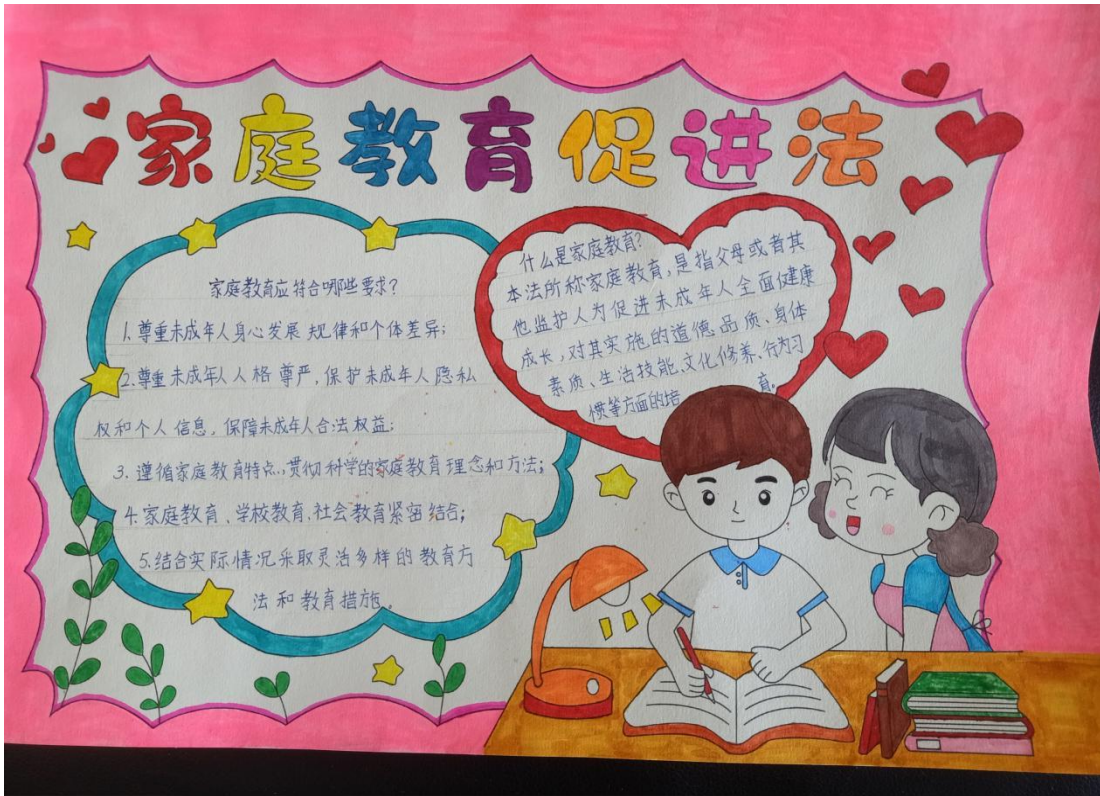 家庭教育促进法
家庭教育应符合哪些要求?
1.尊重未成年人身心发展规律和个体差异;
2.尊重未成年人人格尊严,保护未成年人隐私
权和个人信息,保障未成年人合法权益;
3.遵循家庭教育特点,贯彻科学的家庭教育理念和方法;
4.家庭教育、学校教育、社会教育紧密结合;
5.结合实际情况采取灵活多样的教育方
法和教育措施。
什么是家庭教育?
本法所称家庭教育,是指父母或者其
他监护人为促进未成年人全面健康
成长,对其实施的道德品质、身体
素质、生活技能、文化修养、行为习
惯等方面的培 育。